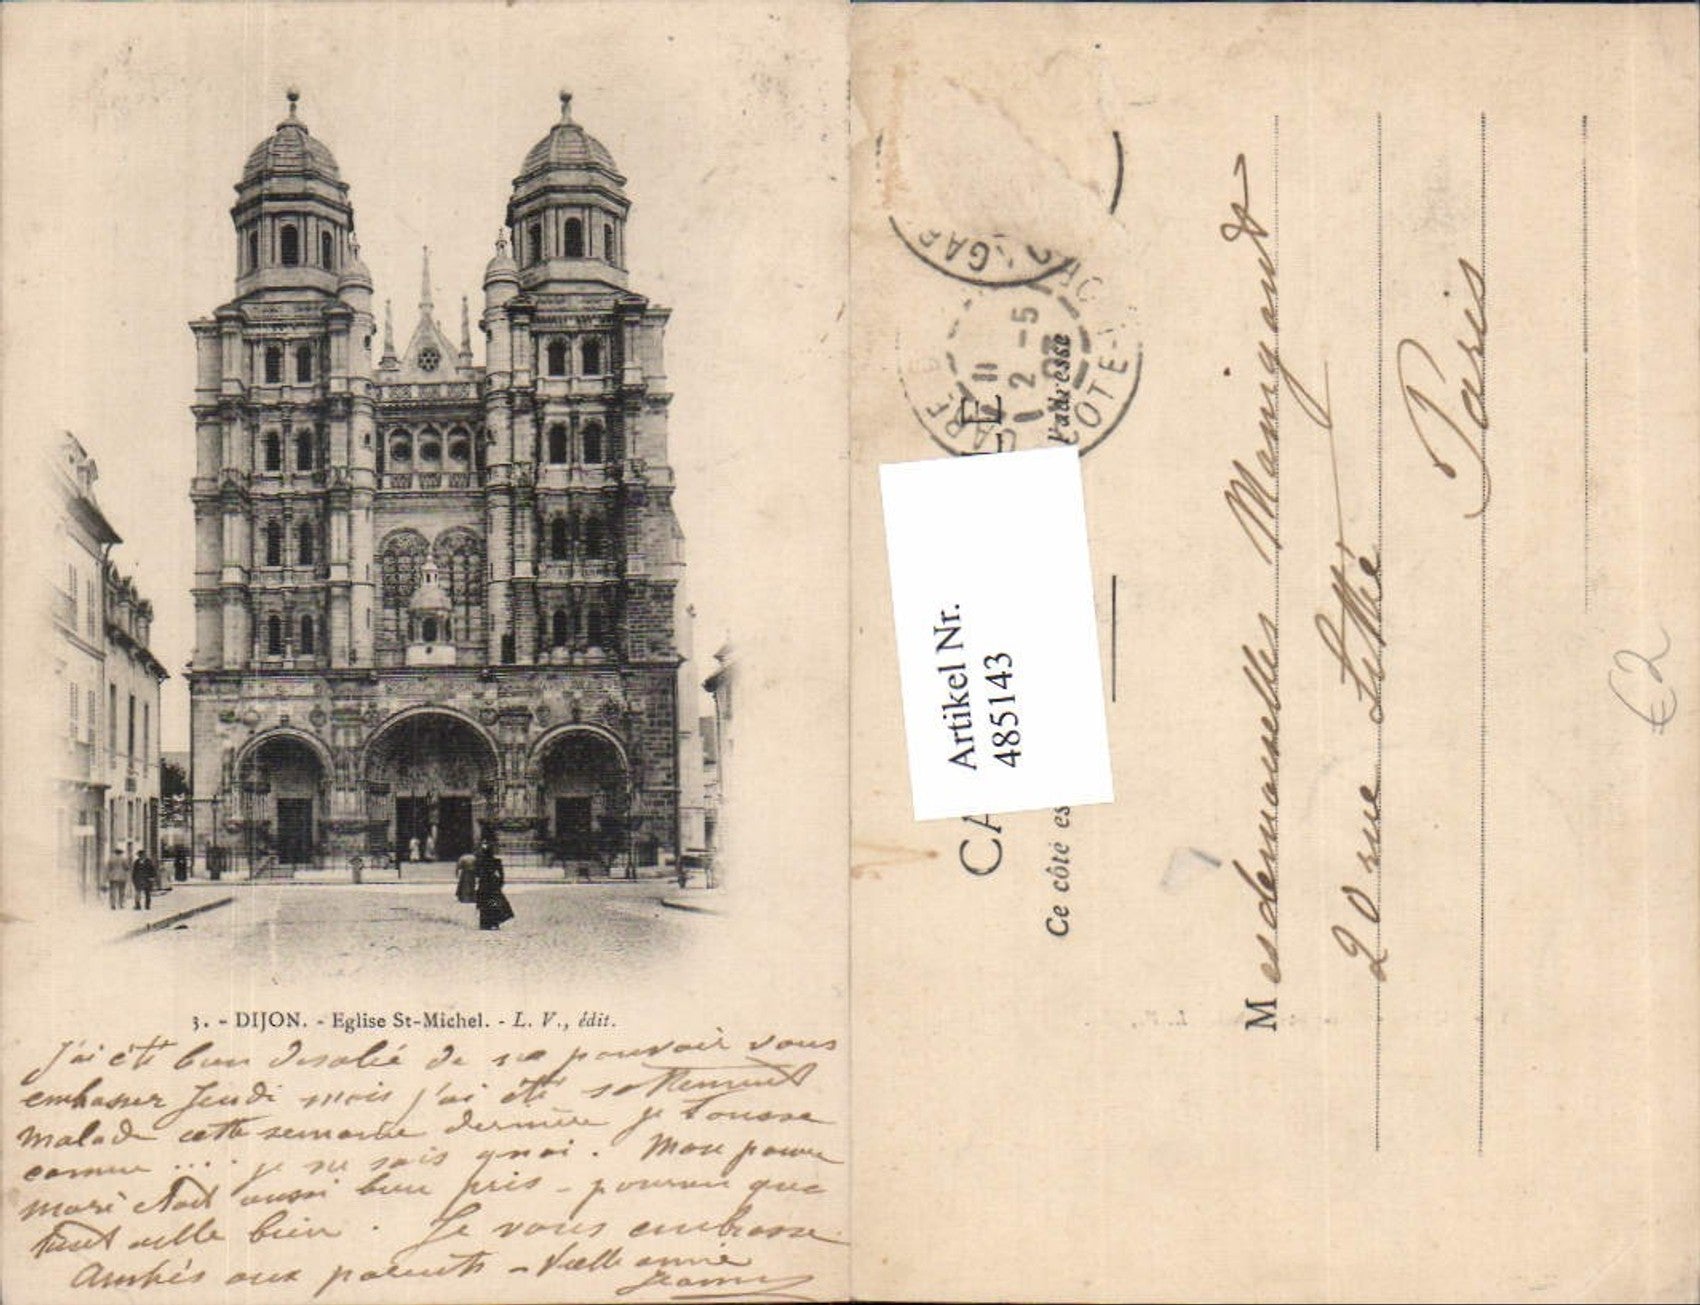 3. - DIJON. - Eglise St-Michel. - L. V., édit.
J'ai été bien désolée de ne pouvoir vous
embrasser Jeudi mais j'ai été sottement
malade cette semaine dernière je tousse
comme .... je ne sais quoi. Mon pauvre
mari était aussi bien pris - pourvu que
tout aille bien. Je vous embrasse
Amitiés aux parents - Votre amie
Jeanne
CA
E
Ce côté es
l'adresse
GARE
11
2 -5
03
COTE-
GAR
Artikel Nr.
485143
Mesdemoiselles Maingault
20 rue Littré
Paris
€2